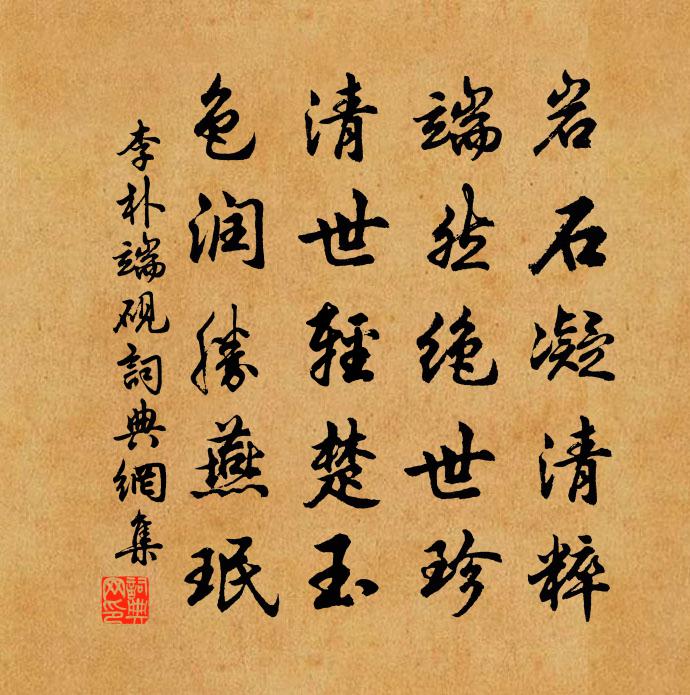 岩石凝清粹
端然绝世珍
清世輕楚玉
色润勝燕珉
李朴端硯詞典網集
詞典网印